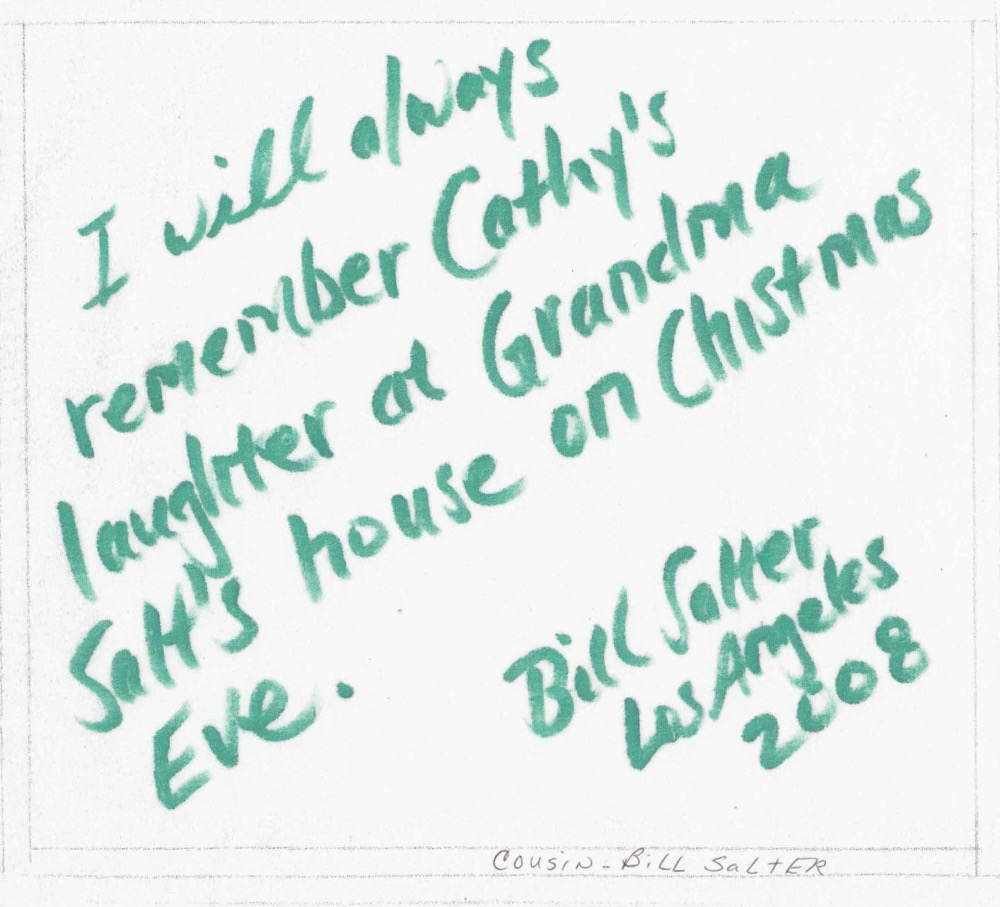 I will always
remember Cathy's
laughter at Grandma
Salt's house on Chistmas
Eve.
Bill Salter
Los Angeles
2008
COUSIN - BILL SALTER